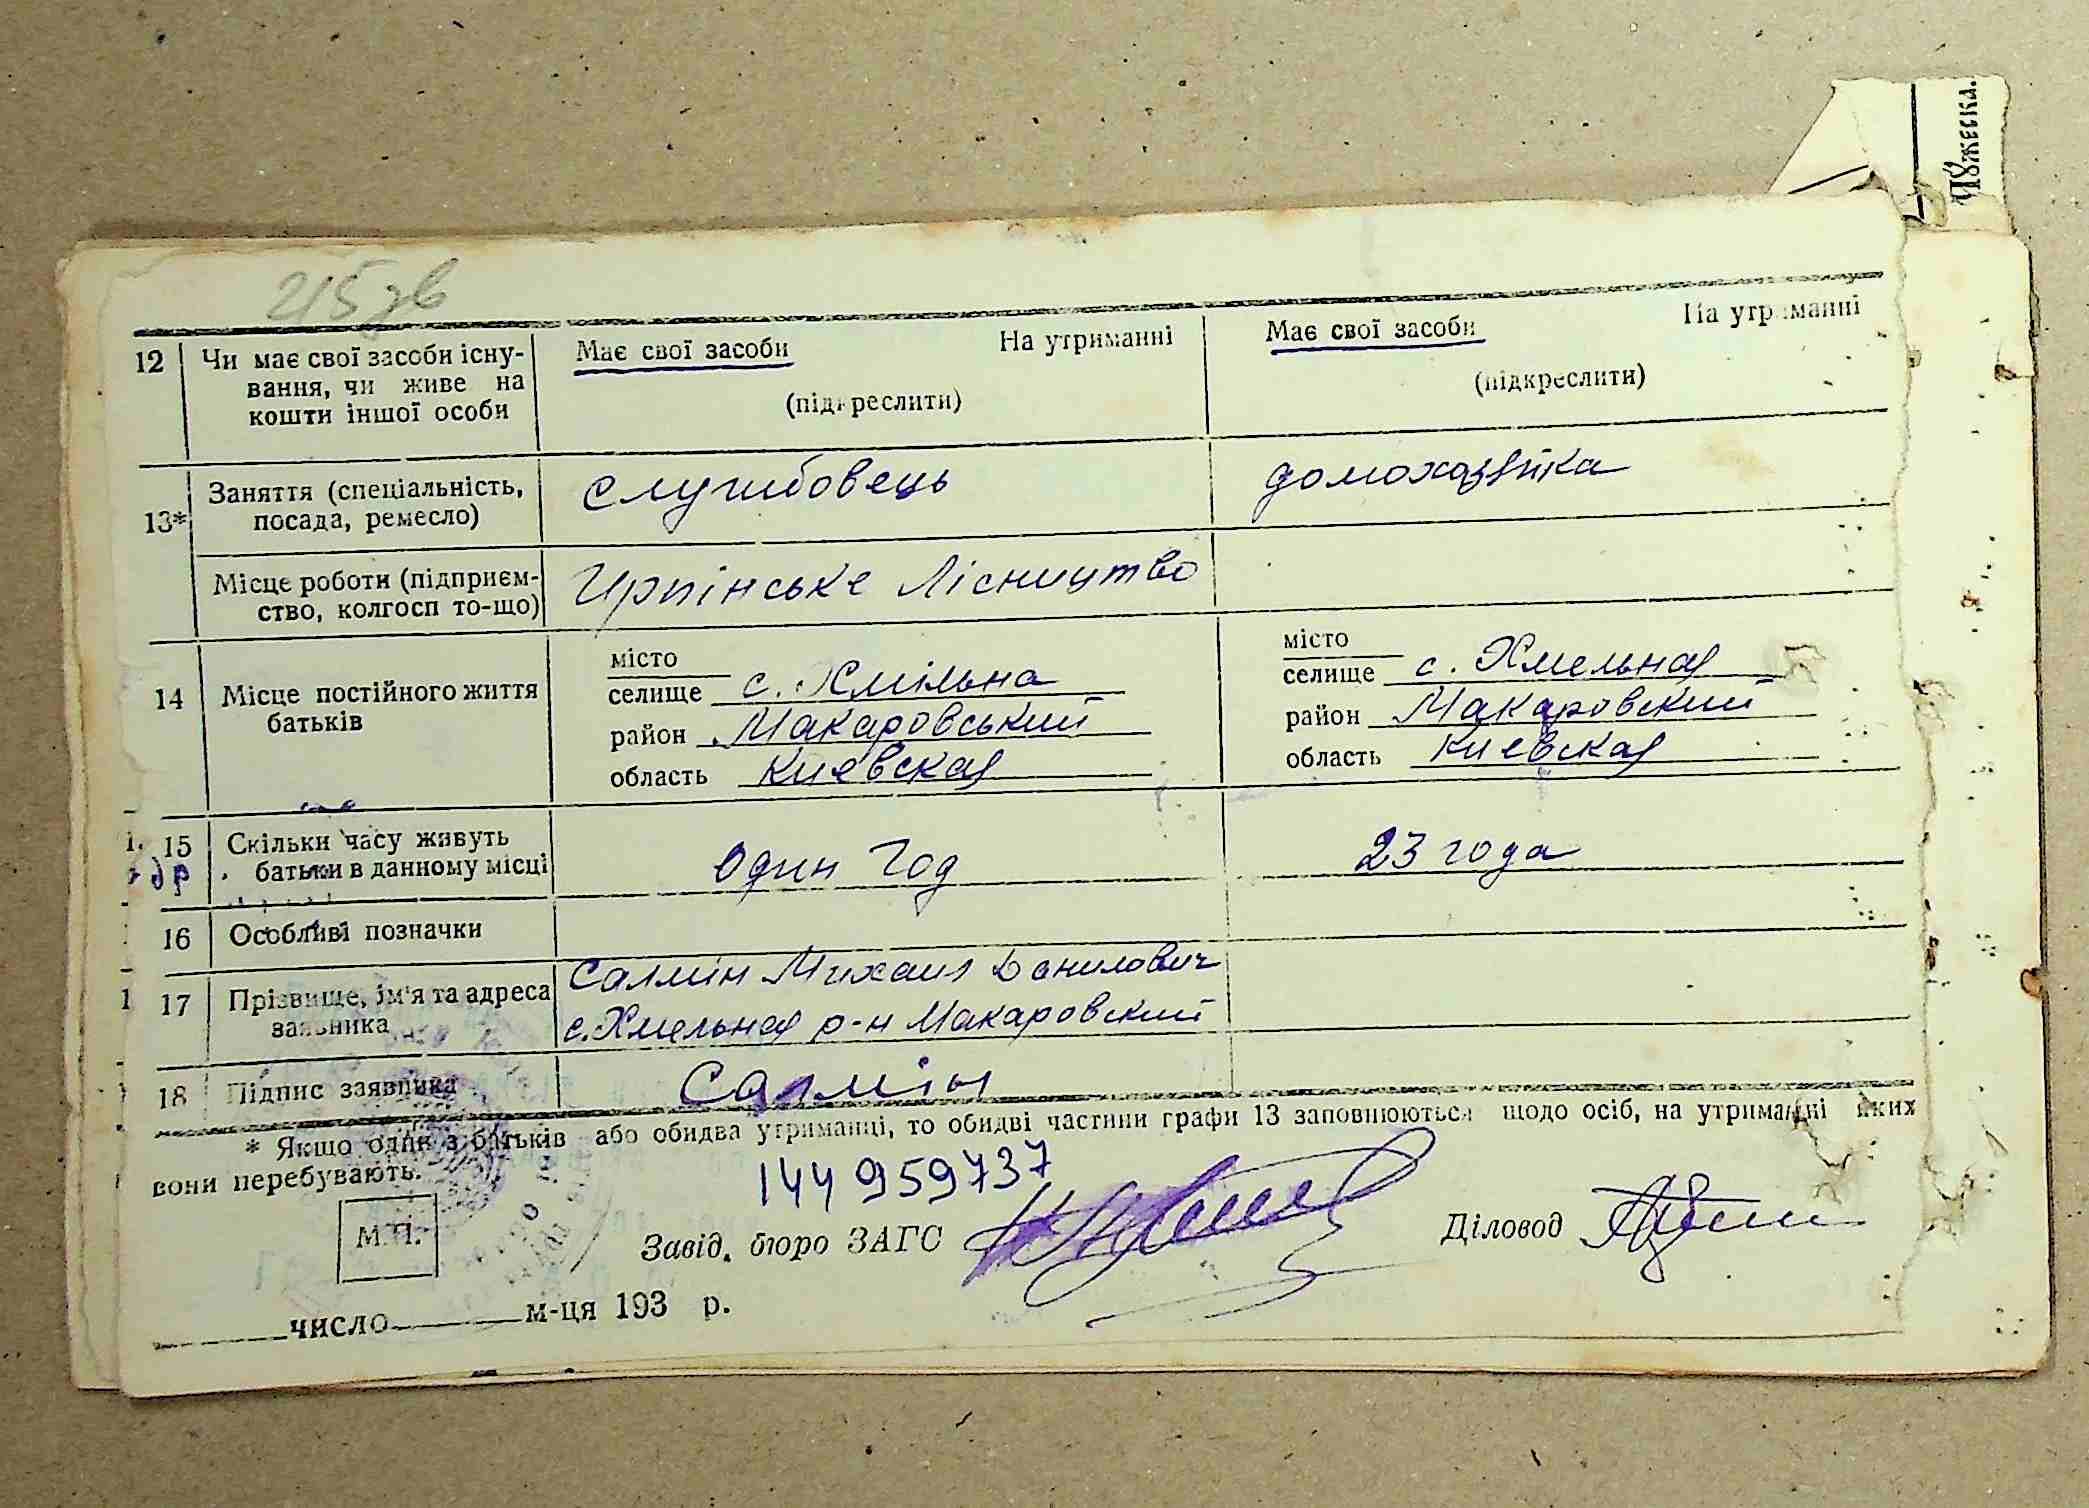 215 зв
Чужеска.
12 Чи має свої засоби існу- Має свої засоби На утриманні Має свої засоби На утриманні
вання, чи живе на
кошти іншої особи (підкреслити) (підкреслити)
13* Заняття (спеціальність, службовець домохазяйка
посада, ремесло)
Місце роботи (підприєм- Ирпінське Лісництво
ство, колгосп то-що)
14 Місце постійного життя
батьків
місто
селище с. Хмільна
район Макаровський
область Киевская
місто
селище с. Хмельная
район Макаровский
область Киевская
15 Скільки часу живуть один год 23 года
батьки в данному місці
16 Особливі позначки
17 Прізвище, ім'я та адреса Салмін Михаил Данилович
заявника с. Хмельная р-н Макаровский
18 Підпис заявника Салмін
* Якщо один з батьків або обидва утриманці, то обидві частини графи 13 заповнюються щодо осіб, на утриманні яких
вони перебувають.
144 959737
М.П. Завід. бюро ЗАГС Діловод
число м-ця 193 р.